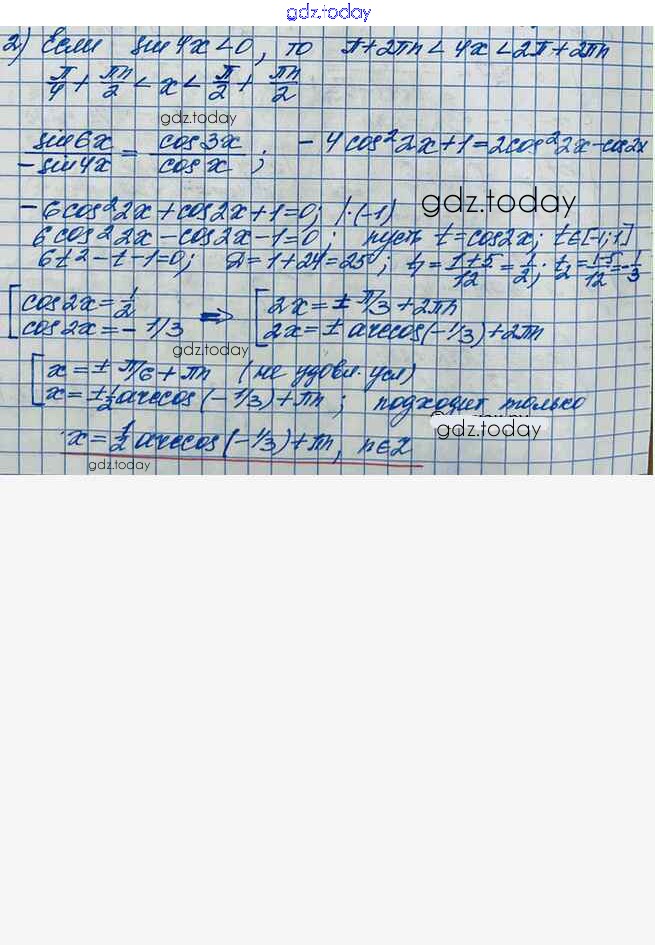 gdz.today
2) Если sin4x<0, то π+2πn<4x<2π+2πn
π/4 + πn/2 < x < π/2 + πn/2
gdz.today
sin6x/-sin4x = cos3x/cosx; -4cos²2x+1=2cos²2x-cos2x
gdz.today
-6cos²2x+cos2x+1=0; |·(-1)
6cos²2x-cos2x-1=0; пусть t=cos2x; t∈[-1;1]
6t²-t-1=0; D=1+24=25; t₁=(1+5)/12=1/2; t₂=(1-5)/12=-1/3
[cos2x=1/2 ⇒ [2x=±π/3+2πn
cos2x=-1/3 2x=±arccos(-1/3)+2πn
gdz.today
[x=±π/6+πn (не удовл. усл)
x=±1/2arccos(-1/3)+πn; подходит только
x=1/2arccos(-1/3)+πn, n∈Z
gdz.today
gdz.today